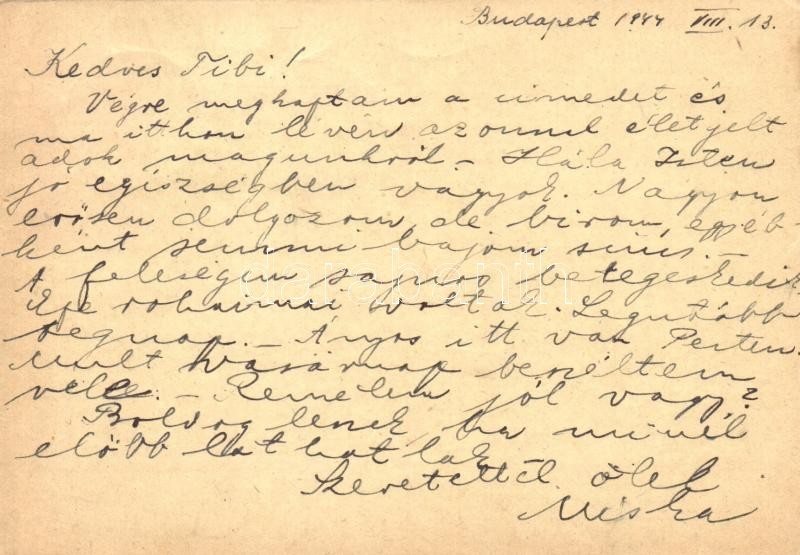 Budapest 1944 VIII. 13.
Kedves Tibi!
Végre megkaptam a címedet és
ma itthon lévén azonnal életjelt
adok magunkról. - Hála Isten
jó egészségben vagyok. Nagyon
erősen dolgozom de birom, egyéb-
ként semmi bajom sincs. -
A feleségem sajnos betegeskedik
Epe rohamai voltak. Legutóbb
tegnap. - Ányos itt van Pesten.
Mult vasárnap beszéltem
vele. - Remélem jól vagy?
Boldog leszek ha minél
előbb láthatlak
Szeretettel ölel
Miska
darabanth